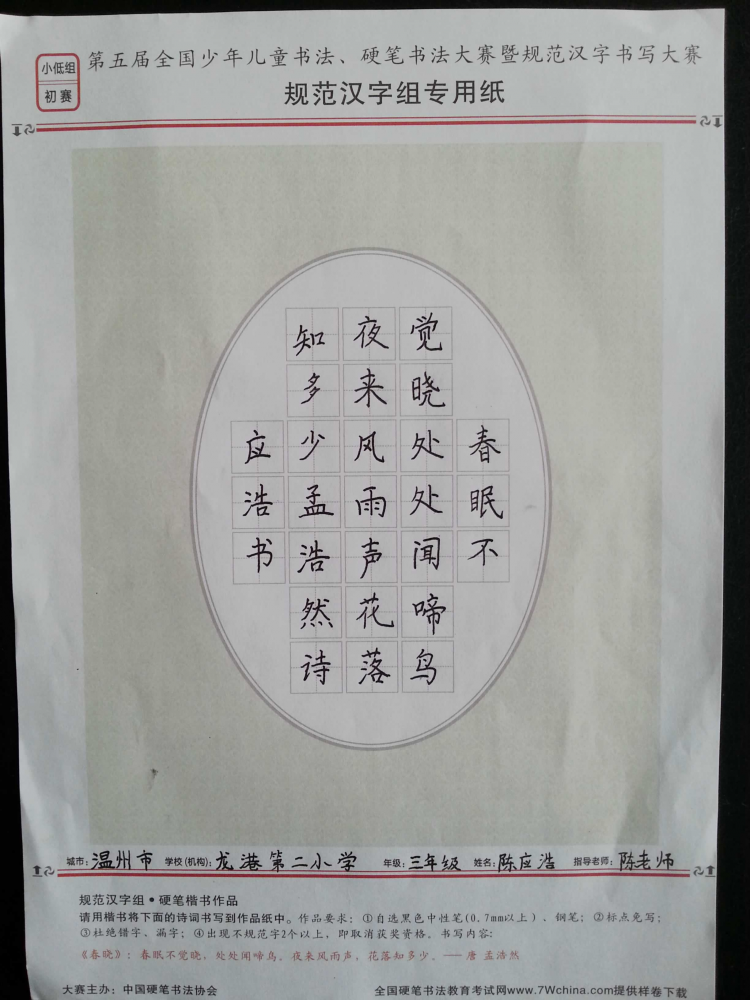 小低组
初赛
第五届全国少年儿童书法、硬笔书法大赛暨规范汉字书写大赛
规范汉字组专用纸
春眠不
觉晓处处闻啼鸟
夜来风雨声花落
知多少孟浩然诗
应浩书
城市：温州市 学校(机构)：龙港第二小学 年级：三年级 姓名：陈应浩 指导老师：陈老师
规范汉字组•硬笔楷书作品
请用楷书将下面的诗词书写到作品纸中。作品要求：①自选黑色中性笔(0.7mm以上)、钢笔；②标点免写；
③杜绝错字、漏字；④出现不规范字2个以上，即取消获奖资格。书写内容：
《春晓》：春眠不觉晓，处处闻啼鸟。夜来风雨声，花落知多少。——唐 孟浩然
大赛主办：中国硬笔书法协会
全国硬笔书法教育考试网www.7Wchina.com提供样卷下载